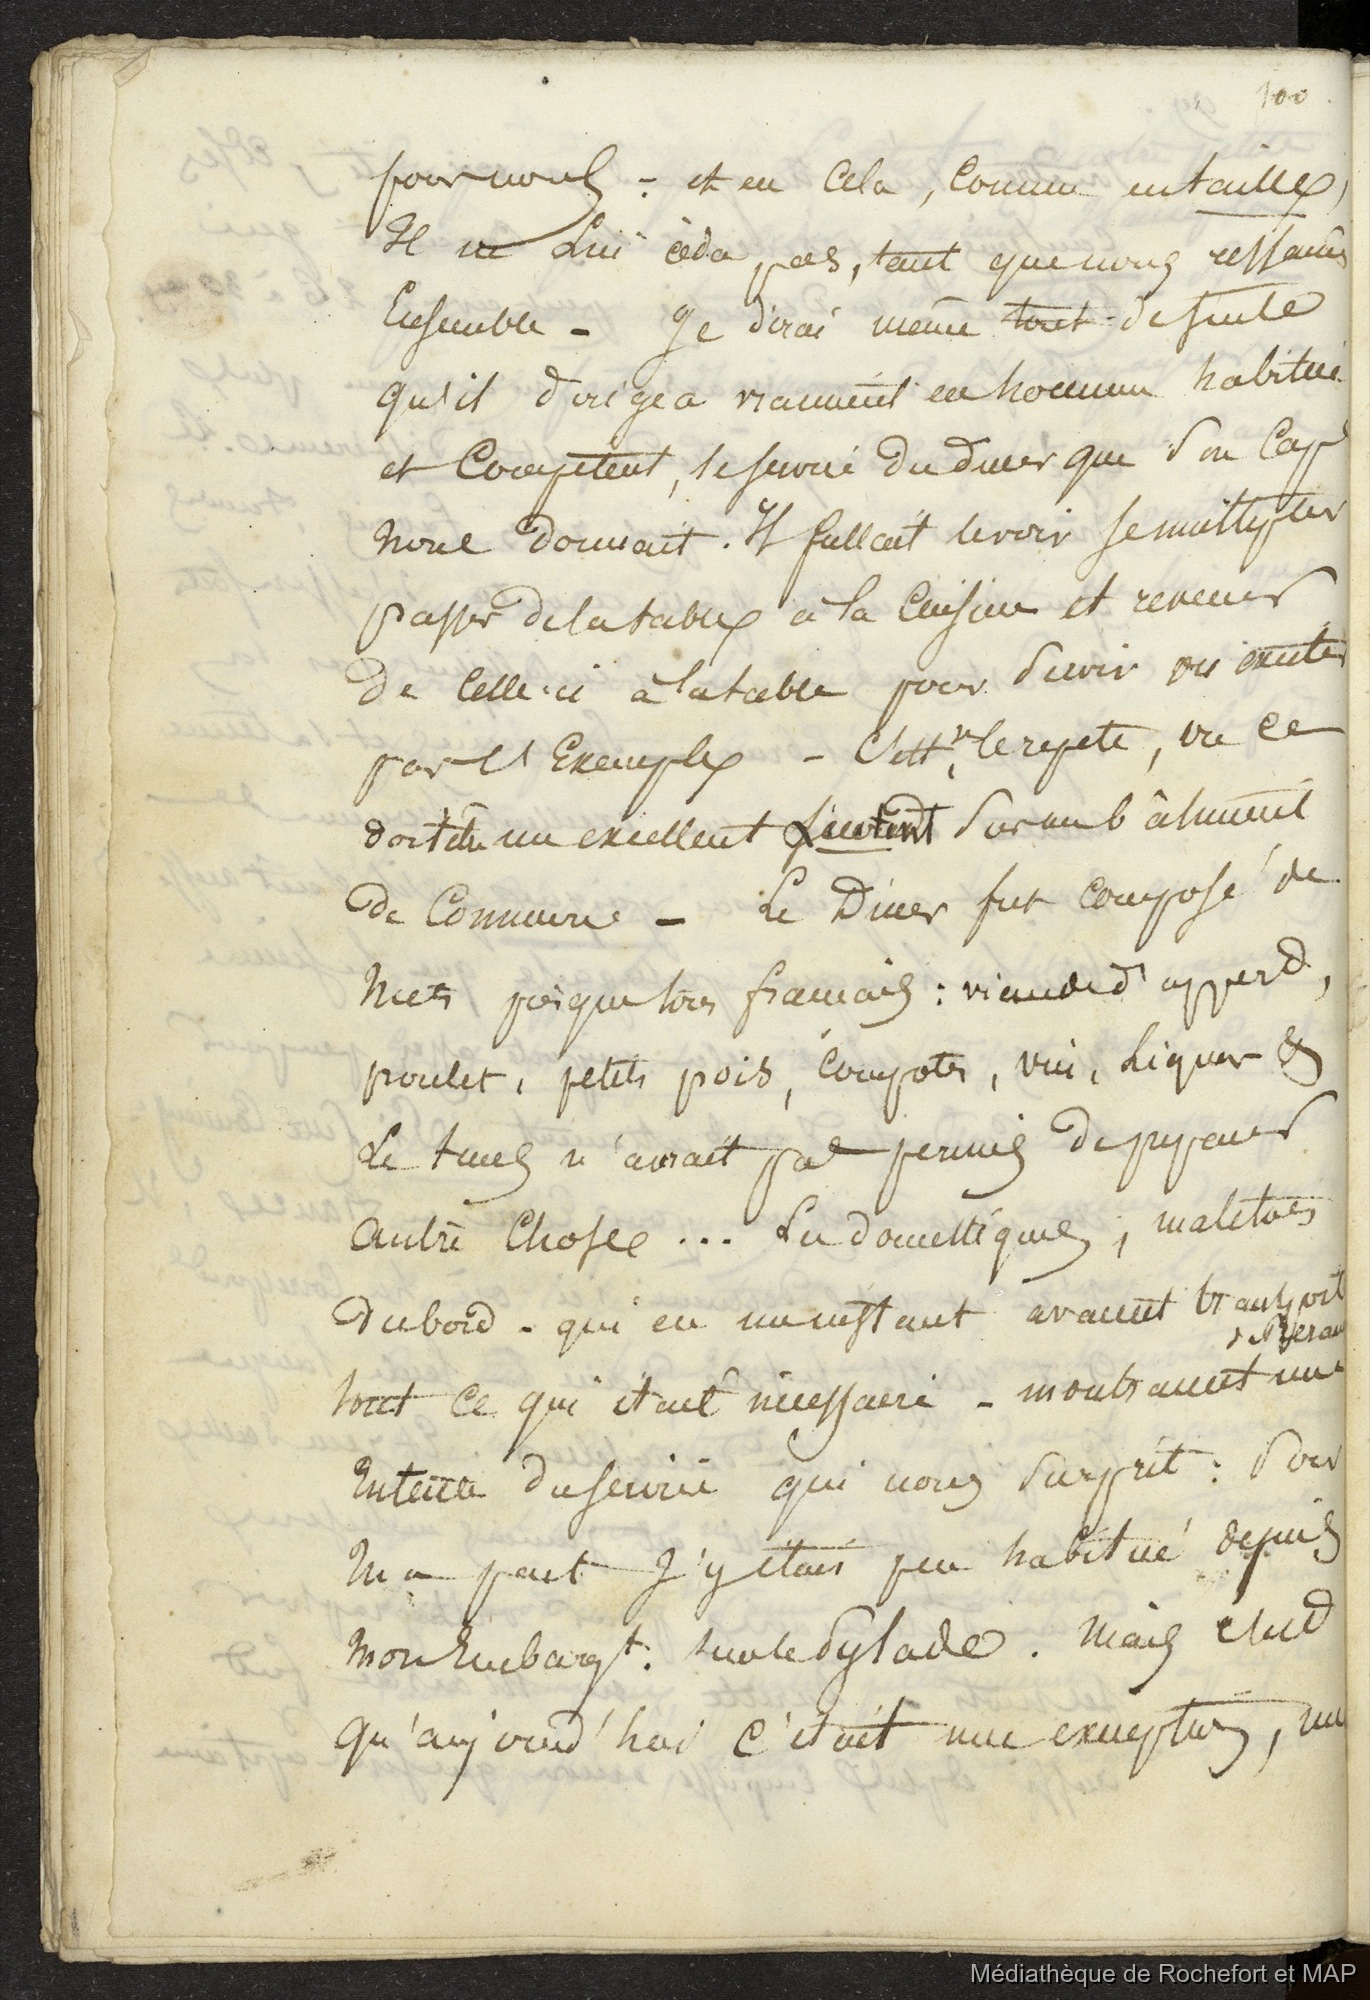 100
pour nous - et en cela, comme en taille,
Il ne lui céda pas, tant que nous restames
Ensemble - Je dirai même tout de suite
qu'il dirigea vraiment en homme habitué
et Compétent, le service du diner que son Capne
nous donnait. Il fallait le voir se multiplier
passer de la table à la Cuisine et revenir
de Celle-ci à la table pour servir ou exciter
par l'Exemple - C'ett, le repete,
doit être un excellent Lieutent sur un bâtiment
de Commerce - Le Diner fut composé de
Mets presque tous français : viande d'
poulet, petits pois, compotes, vin, Liqueur &
Le temps n'avait pas permis de preparer
autre Chose ... Les domestiques, matelots
du bord - qui en un instant avaient transporté
tout ce qui était nécessaire - montraient une
Entente du service qui nous surprit : Pour
Ma part j'y étais peu habitué depuis
mon Embarqt. sur le Pylade. Mais
qu'aujourd'hui c'était une exception, une